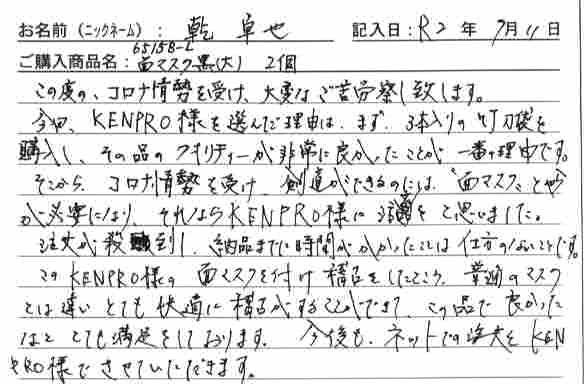 お名前（ニックネーム）: 乾 卓也 記入日:R2年 7月11日
65158-L
ご購入商品名:面マスク黒(大) 2個
この度の、コロナ情勢を受け、大変なご苦労察し致します。
今回、KENPRO様を選んだ理由は、まず、3本入りの竹刀袋を
購入し、その品のクオリティーが非常に良かったことが一番の理由です。
そこから、コロナ情勢を受け、剣道ができるのには、"面マスク"とやら
が必要になり、それならKENPRO様に注文をと思いました。
注文が殺到し、納品までに時間がかかったことは仕方のないことです。
このKENPRO様の面マスクを付け稽古をしたところ、普通のマスク
とは違いとても快適に稽古がすることができて、この品で良かった
なと とても満足をしております。 今後も、ネットでの注文をKEN
PRO様でさせていただきます。